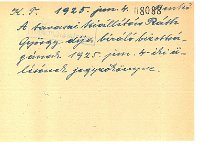 K. T. 1925. jun. 4. 08088 Benkő
A tavaszi kiállítási Ráth
György-díj biráló bizottsá-
gának 1925. jun. 4-iki ü-
lésének jegyzőkönyve.